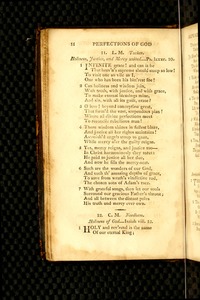 18 PERFECTIONS OF GOD
11. L. M.
Holiness, Justice, and Mercy united.—Ps. lxxxv. 10.
1 INFINITE grace! and can it be
That heav'n's supreme should stoop so low!
To visit one so vile as I,
One who has been his bitt'rest foe!
2 Can holiness and wisdom join,
With truth, with justice, and with grace,
To make eternal blessings mine,
And sin, with all its guilt, erase?
3 O love! beyond conception great,
That form'd the vast, stupendous plan!
Where all divine perfections meet
To reconcile rebellious man!
4 There wisdom shines in fullest blaze,
And justice all her rights maintains!
Astonish'd angels stoop to gaze,
While mercy o'er the guilty reigns.
5 Yes, mercy reigns, and justice too—
In Christ harmoniously they meet:
He paid to justice all her due,
And now he fills the mercy-seat.
6 Such are the wonders of our God,
And such th' amazing depths of grace,
To save from wrath's vindictive rod,
The chosen sons of Adam's race.
7 With grateful songs, then let our souls
Surround our gracious Father's throne;
And all between the distant poles
His truth and mercy ever own.
12. C. M.
Holiness of God.—Isaiah
1 HOLY and rev'rend is the name
Of our eternal King;